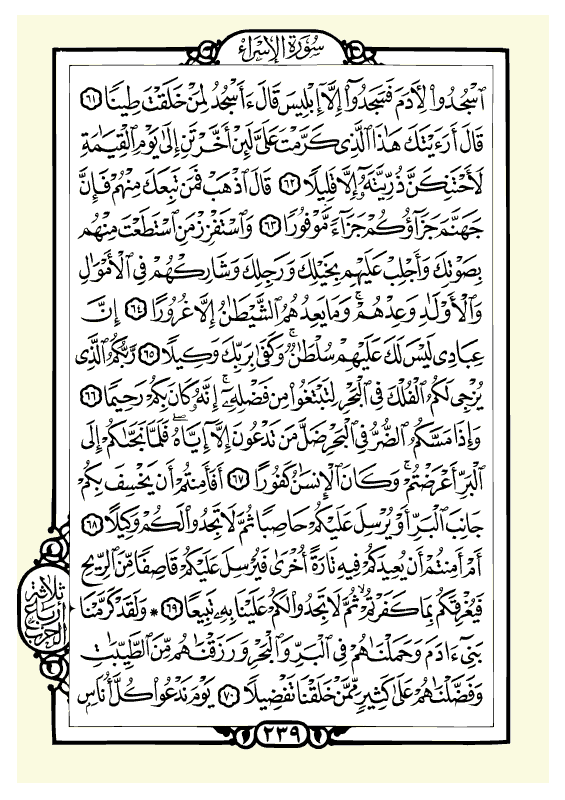 سُورَةُ الإِسْرَاء
ٱسْجُدُوا۟ لِأٓدَمَ فَسَجَدُوٓا۟ إِلَّآ إِبْلِيسَ قَالَ ءَأَسْجُدُ لِمَنْ خَلَقْتَ طِينًا ٦١
قَالَ أَرَءَيْتَكَ هَٰذَا ٱلَّذِى كَرَّمْتَ عَلَىَّ لَئِنْ أَخَّرْتَنِ إِلَىٰ يَوْمِ ٱلْقِيَٰمَةِ
لَأَحْتَنِكَنَّ ذُرِّيَّتَهُۥٓ إِلَّا قَلِيلًا ٦٢ قَالَ ٱذْهَبْ فَمَن تَبِعَكَ مِنْهُمْ فَإِنَّ
جَهَنَّمَ جَزَآؤُكُمْ جَزَآءً مَّوْفُورًا ٦٣ وَٱسْتَفْزِزْ مَنِ ٱسْتَطَعْتَ مِنْهُم
بِصَوْتِكَ وَأَجْلِبْ عَلَيْهِم بِخَيْلِكَ وَرَجِلِكَ وَشَارِكْهُمْ فِى ٱلْأَمْوَٰلِ
وَٱلْأَوْلَٰدِ وَعِدْهُمْ ۚ وَمَا يَعِدُهُمُ ٱلشَّيْطَٰنُ إِلَّا غُرُورًا ٦٤ إِنَّ
عِبَادِى لَيْسَ لَكَ عَلَيْهِمْ سُلْطَٰنٌ ۚ وَكَفَىٰ بِرَبِّكَ وَكِيلًا ٦٥ رَّبُّكُمُ ٱلَّذِى
يُزْجِى لَكُمُ ٱلْفُلْكَ فِى ٱلْبَحْرِ لِتَبْتَغُوا۟ مِن فَضْلِهِۦٓ ۚ إِنَّهُۥ كَانَ بِكُمْ رَحِيمًا ٦٦
وَإِذَا مَسَّكُمُ ٱلضُّرُّ فِى ٱلْبَحْرِ ضَلَّ مَن تَدْعُونَ إِلَّآ إِيَّاهُ ۖ فَلَمَّا نَجَّىٰكُمْ إِلَى
ٱلْبَرِّ أَعْرَضْتُمْ ۚ وَكَانَ ٱلْإِنسَٰنُ كَفُورًا ٦٧ أَفَأَمِنتُمْ أَن يَخْسِفَ بِكُمْ
جَانِبَ ٱلْبَرِّ أَوْ يُرْسِلَ عَلَيْكُمْ حَاصِبًا ثُمَّ لَا تَجِدُوا۟ لَكُمْ وَكِيلًا ٦٨
أَمْ أَمِنتُمْ أَن يُعِيدَكُمْ فِيهِ تَارَةً أُخْرَىٰ فَيُرْسِلَ عَلَيْكُمْ قَاصِفًا مِّنَ ٱلرِّيحِ
فَيُغْرِقَكُم بِمَا كَفَرْتُمْ ۙ ثُمَّ لَا تَجِدُوا۟ لَكُمْ عَلَيْنَا بِهِۦ تَبِيعًا ٦٩ * وَلَقَدْ كَرَّمْنَا
بَنِىٓ ءَادَمَ وَحَمَلْنَٰهُمْ فِى ٱلْبَرِّ وَٱلْبَحْرِ وَرَزَقْنَٰهُم مِّنَ ٱلطَّيِّبَٰتِ
وَفَضَّلْنَٰهُمْ عَلَىٰ كَثِيرٍ مِّمَّنْ خَلَقْنَا تَفْضِيلًا ٧٠ يَوْمَ نَدْعُوا۟ كُلَّ أُنَاسٍ
ثلاثة
أرباع
الحزب
٢٣٩